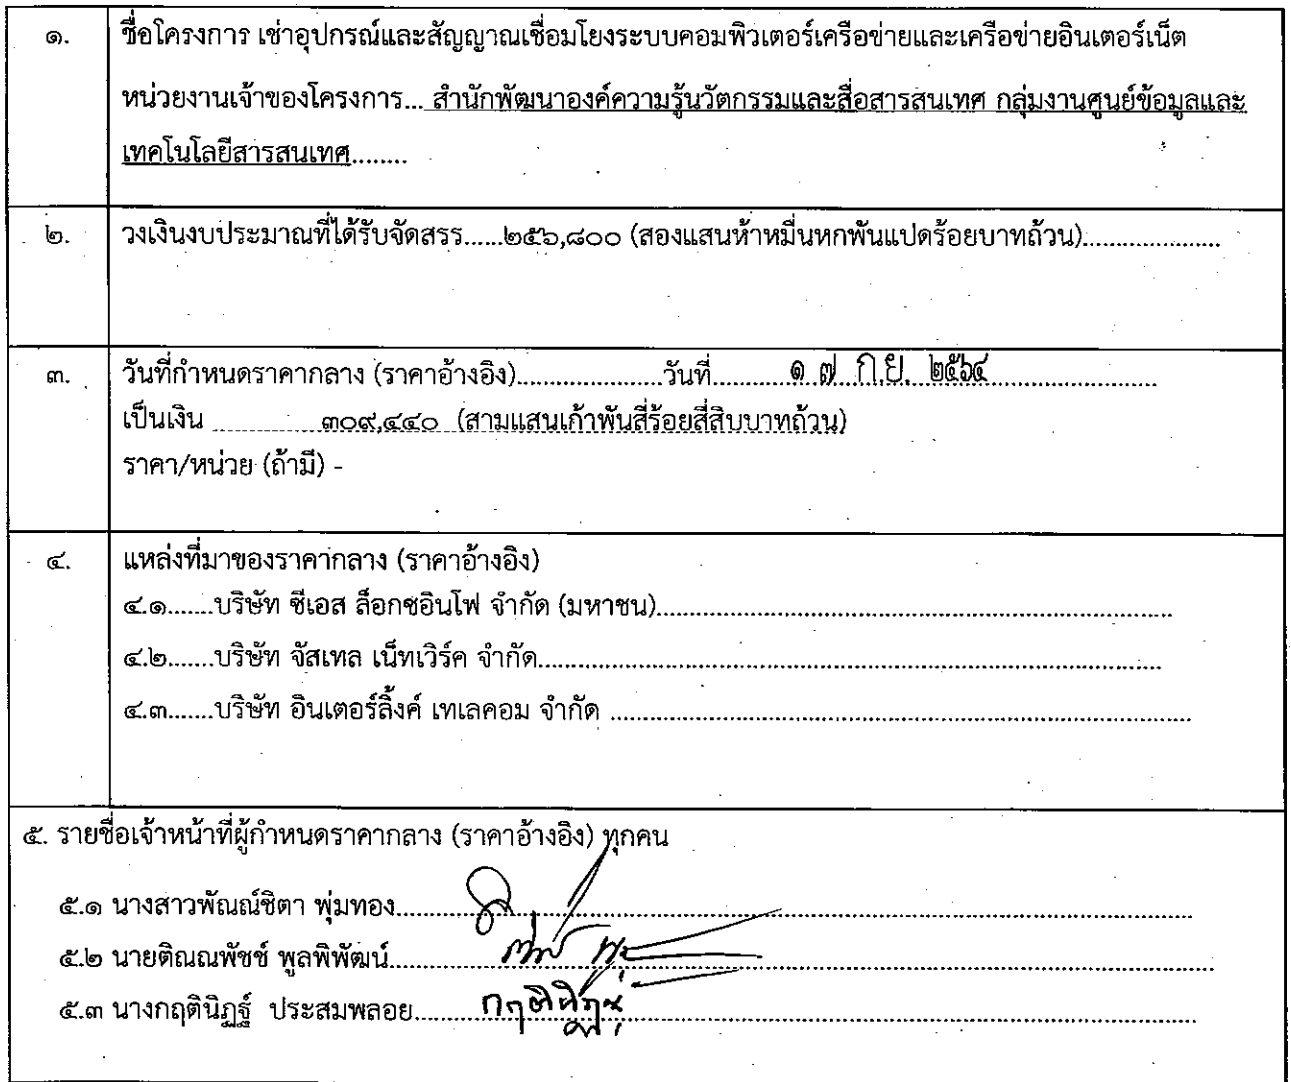 ๑. ชื่อโครงการ เช่าอุปกรณ์และสัญญาณเชื่อมโยงระบบคอมพิวเตอร์เครือข่ายและเครือข่ายอินเตอร์เน็ต
หน่วยงานเจ้าของโครงการ... สำนักพัฒนาองค์ความรู้นวัตกรรมและสื่อสารสนเทศ กลุ่มงานศูนย์ข้อมูลและ
เทคโนโลยีสารสนเทศ........
๒. วงเงินงบประมาณที่ได้รับจัดสรร......๒๕๖,๘๐๐ (สองแสนห้าหมื่นหกพันแปดร้อยบาทถ้วน)......................
๓. วันที่กำหนดราคากลาง (ราคาอ้างอิง)......................วันที่............๑ ๗ ก.ย. ๒๕๖๔..........................
เป็นเงิน ................๓๐๙,๔๔๐ (สามแสนเก้าพันสี่ร้อยสี่สิบบาทถ้วน)
ราคา/หน่วย (ถ้ามี) -
๔. แหล่งที่มาของราคากลาง (ราคาอ้างอิง)
๔.๑.......บริษัท ซีเอส ล็อกซอินโฟ จำกัด (มหาชน)......................................................................
๔.๒.......บริษัท จัสเทล เน็ทเวิร์ค จำกัด......................................................................
๔.๓.......บริษัท อินเตอร์ลิ้งค์ เทเลคอม จำกัด ......................................................................
๕. รายชื่อเจ้าหน้าที่ผู้กำหนดราคากลาง (ราคาอ้างอิง) ทุกคน
๕.๑ นางสาวพัณณ์ชิตา พุ่มทอง......................................................................
๕.๒ นายติณณพัชช์ พูลพิพัฒน์......................................................................
๕.๓ นางกฤตินิฏฐ์ ประสมพลอย......................................................................